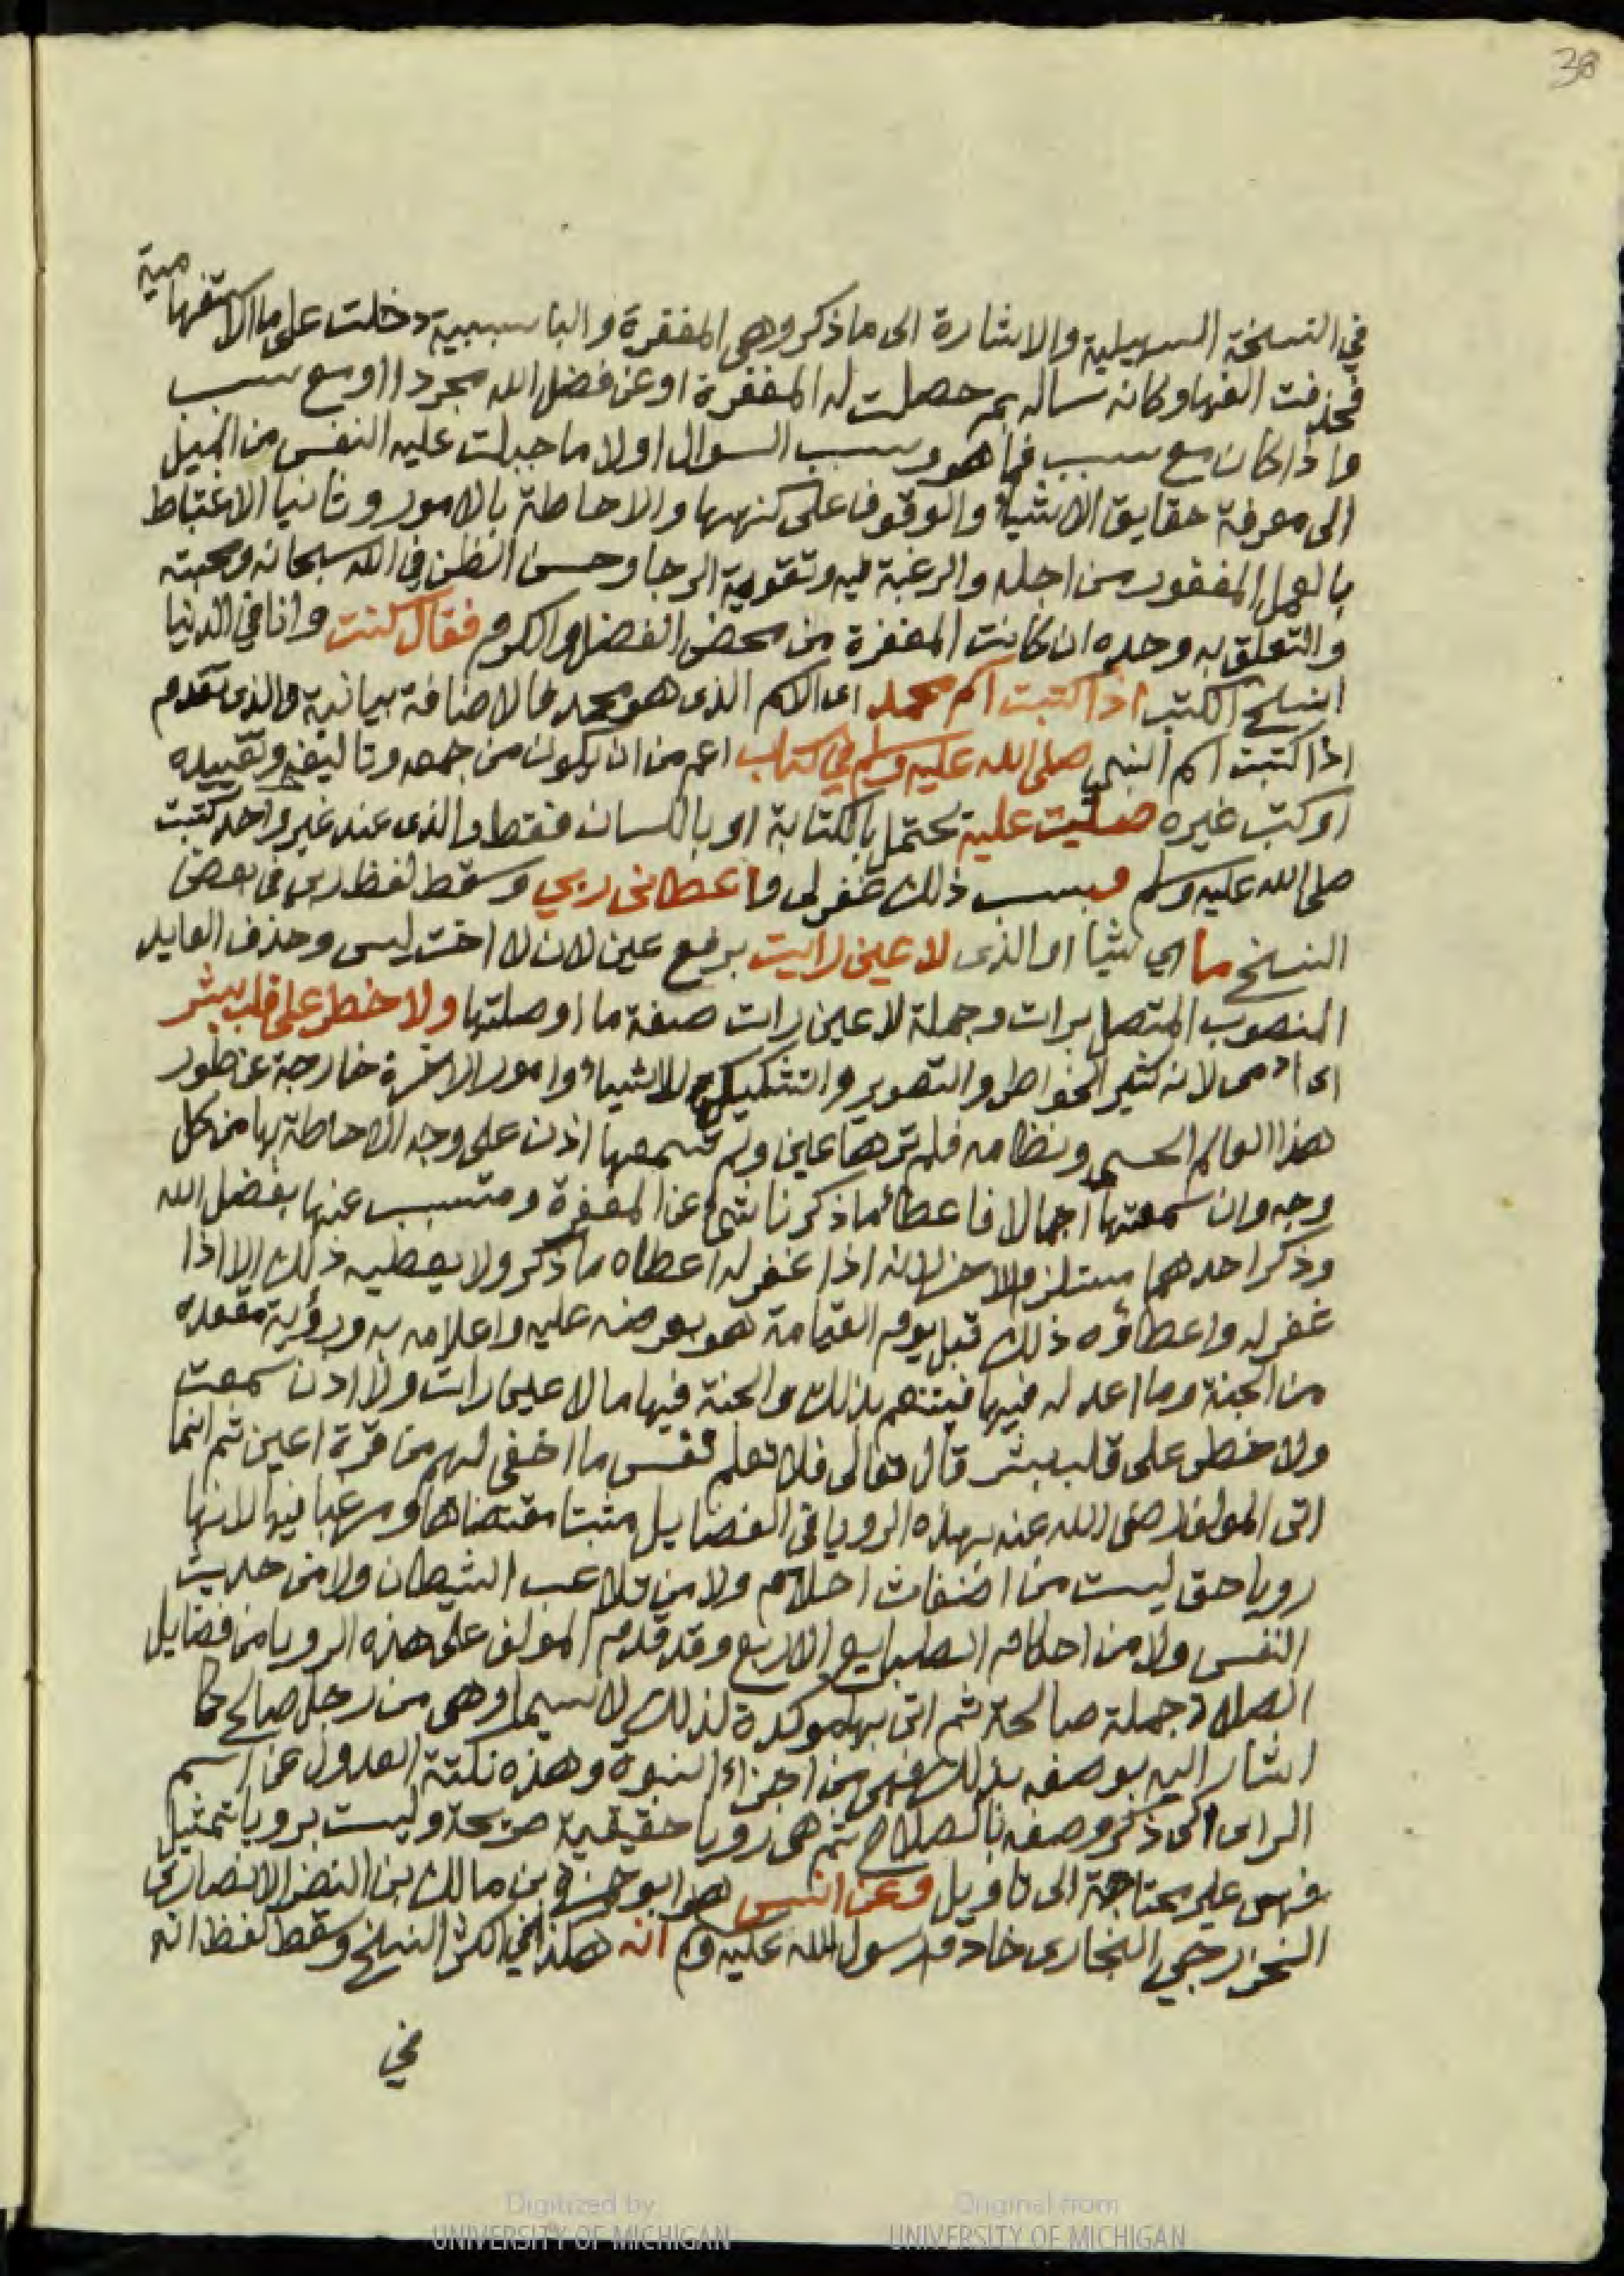 38
في النسخة السهيلية والاشارة الى ما ذكر وهي المغفرة والبا سببية دخلت على ما الاستفهامية
فحذفت الفها وكانه ساله بم حصلت له المغفرة او عن فضل الله مجردا او مع سبب
واذا كان مع سبب فما هو وسبب السوال اولا ما جبلت عليه النفس من الميل
الى معرفة حقايق الاشياء والوقوف على كنهها والاحاطة بالامور وثانيا الاغتباط
بالعمل المغفور من اجله والرغبة فيه وتقوية الرجا وحسن الظن في الله سبحانه ومحبته
والتعلق به وحده ان كانت المغفرة من محض الفضل والكرم فقال كنت وانا في الدنيا
انسخ الكتب اذا كتبت اسم محمد اى الاسم الذى هو محمد فالاضافة بيانية والذى تقدم
اذا كتبت اسم النبي صلى الله عليه وسلم في كتاب اعم من ان يكون من جمعه وتاليفه وتقييده
او كتب غيره صليت عليه يحتمل بالكتابة او باللسان فقط والذى عند غير واحد كتبت
صلى الله عليه وسلم وبسبب ذلك غفر لى فاعطانى ربي وسقط لفظ ربى في بعض
النسخ ما اي شيا او الذى لا عين رايت برفع عين لان لا اخت ليس وحذف العايد
المنصوب المتصل برات وجملة لا عين رات صفة ما او صلتها ولا خطر على قلب بشر
اى ادمى لانه كثير الخواطر والتصوير والتشكيك للاشياء وامور الاخرة خارجة عن طور
هذا العالم الحسى ونظامه فلم ترها عين ولم تسمعها اذن على وجه الاحاطة بها من كل
وجه وان سمعتها اجمالا فاعطا ما ذكر ناشئ عن المغفرة ومتسبب عنها بفضل الله
وذكر احدهما مستلزم الاخر لانه اذا غفر له اعطاه ما ذكر ولا يعطيه ذلك الا اذا
غفر له واعطاؤه ذلك قبل يوم القيامة هو بعرضه عليه واعلامه به ورؤية مقعده
من الجنة وما اعد له فيها فيتنعم بذلك والجنة فيها ما لا عين رات ولا اذن سمعت
ولا خطر على قلب بشر قال تعالى فلا تعلم نفس ما اخفى لهم من قرة اعين ثم انما
اتى المولف رضى الله عنه بهذه الرويا فى الفضايل مثبتا مقتضاها ومرغبا فيها لانها
رويا حق ليست من اضغاث احلام ولا من تلاعب الشيطان ولا من حديث
النفس ولا من احكام الطبايع الاربع وقد قدم المولف على هذه الرويا من فضايل
الصلاة جملة صالحة ثم اتى بها موكدة لذلك لا سيما وهى من رجل صالح كما
اشار اليه بوصفه بذلك فهى من اجزاء النبوة وهذه نكتة العدول عن اسم
الراى الى ذكر وصفه بالصلاح ثم هى رويا حقيقية صريحة وليست برويا تمثيل
فهى غير محتاجة الى تاويل وعن انس هو ابو حمزة بن مالك بن النضر الانصارى
الخزرجي النجارى خادم رسول الله عليه وسلم انه هكذا في اكثر النسخ وسقط لفظ انه
في
Digitized by
UNIVERSITY OF MICHIGAN
Original from
UNIVERSITY OF MICHIGAN